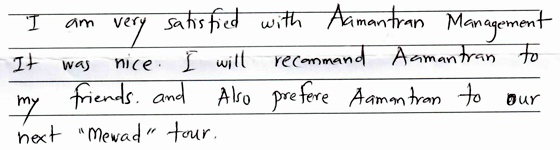 I am very satisfied with Aamantran Management
It was nice. I will recommand Aamantran to
my friends. and Also prefere Aamantran to our
next "Mewad" tour.